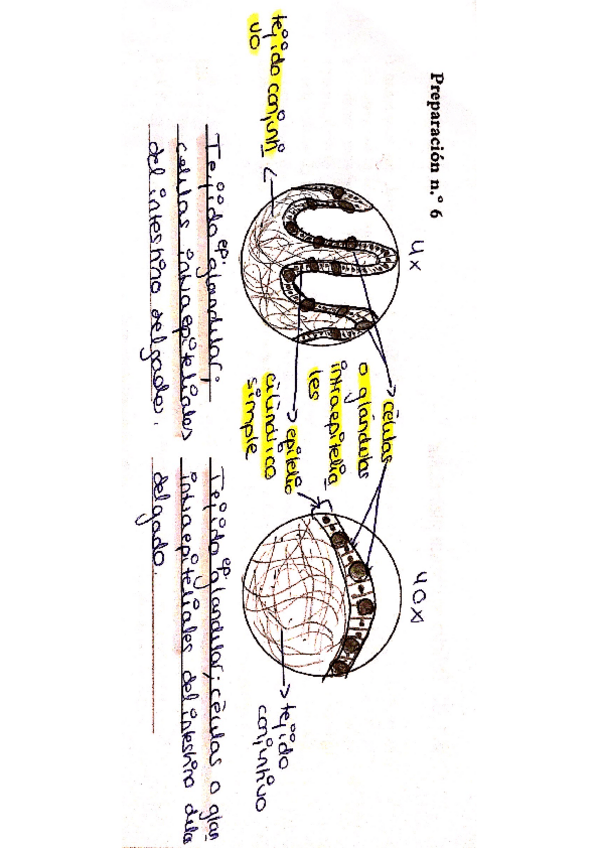 Preparación n.° 6
4x
40x
células
o glándulas
intraepitelia
les
epitelio
cilíndrico
simple
tejido conjunti
vo
tejido
conjuntivo
Tejido epi. glandular;
células intraepiteliales
del intestino delgado.
Tejido epi. glandular; células o glán
intraepiteliales del intestino
delgado.